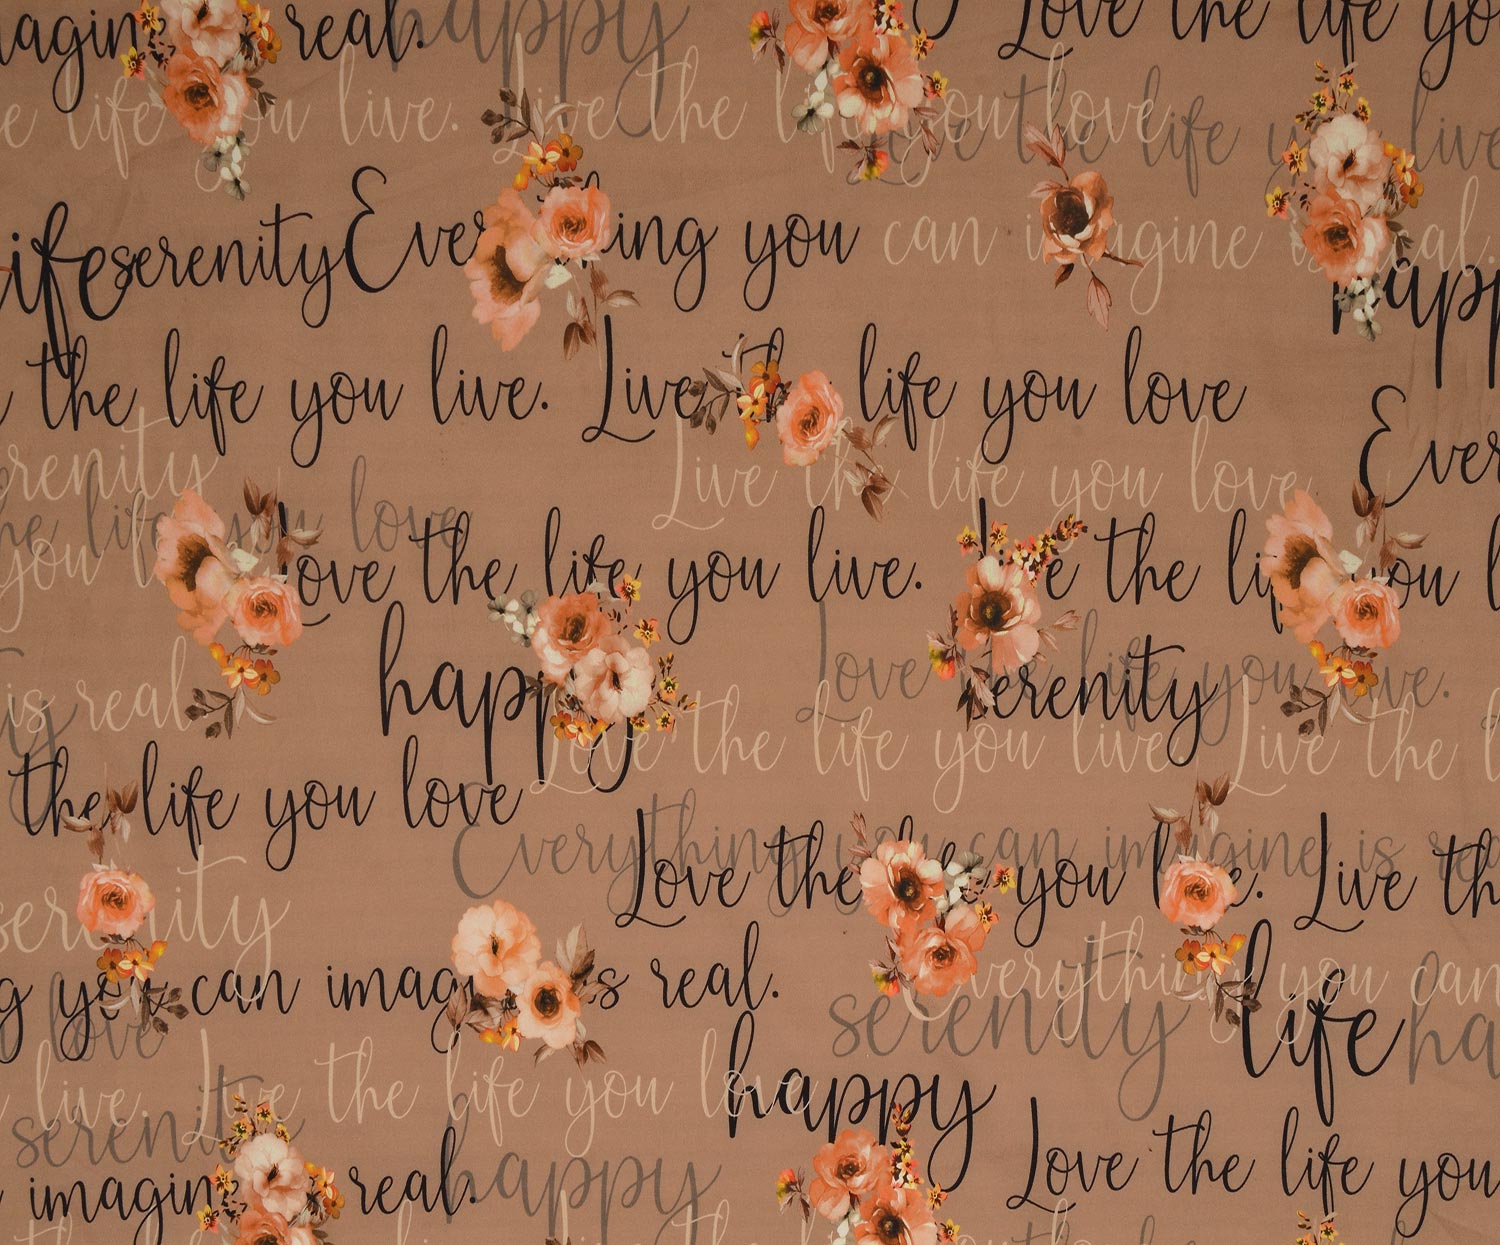 imagin real. happy Love the life yo
e life you live. Live the life you love
Love the life you live
life serenity Everything you can imagine is real.
happ
the life you live. Live the life you love
Ever
serenity Live the life you love
the life you love
you l Love the life you live. Live the life you l
happy Love the life you live.
serenity
is real. Love the life you live. Live the l
the life you love
Everything you can imagine is rea
Love the life you live. Live th
serenity
g you can imagine is real. Everything you can
love serenity life ha
live. Live the life you love
happy
serenity
imagin real. happy Love the life you